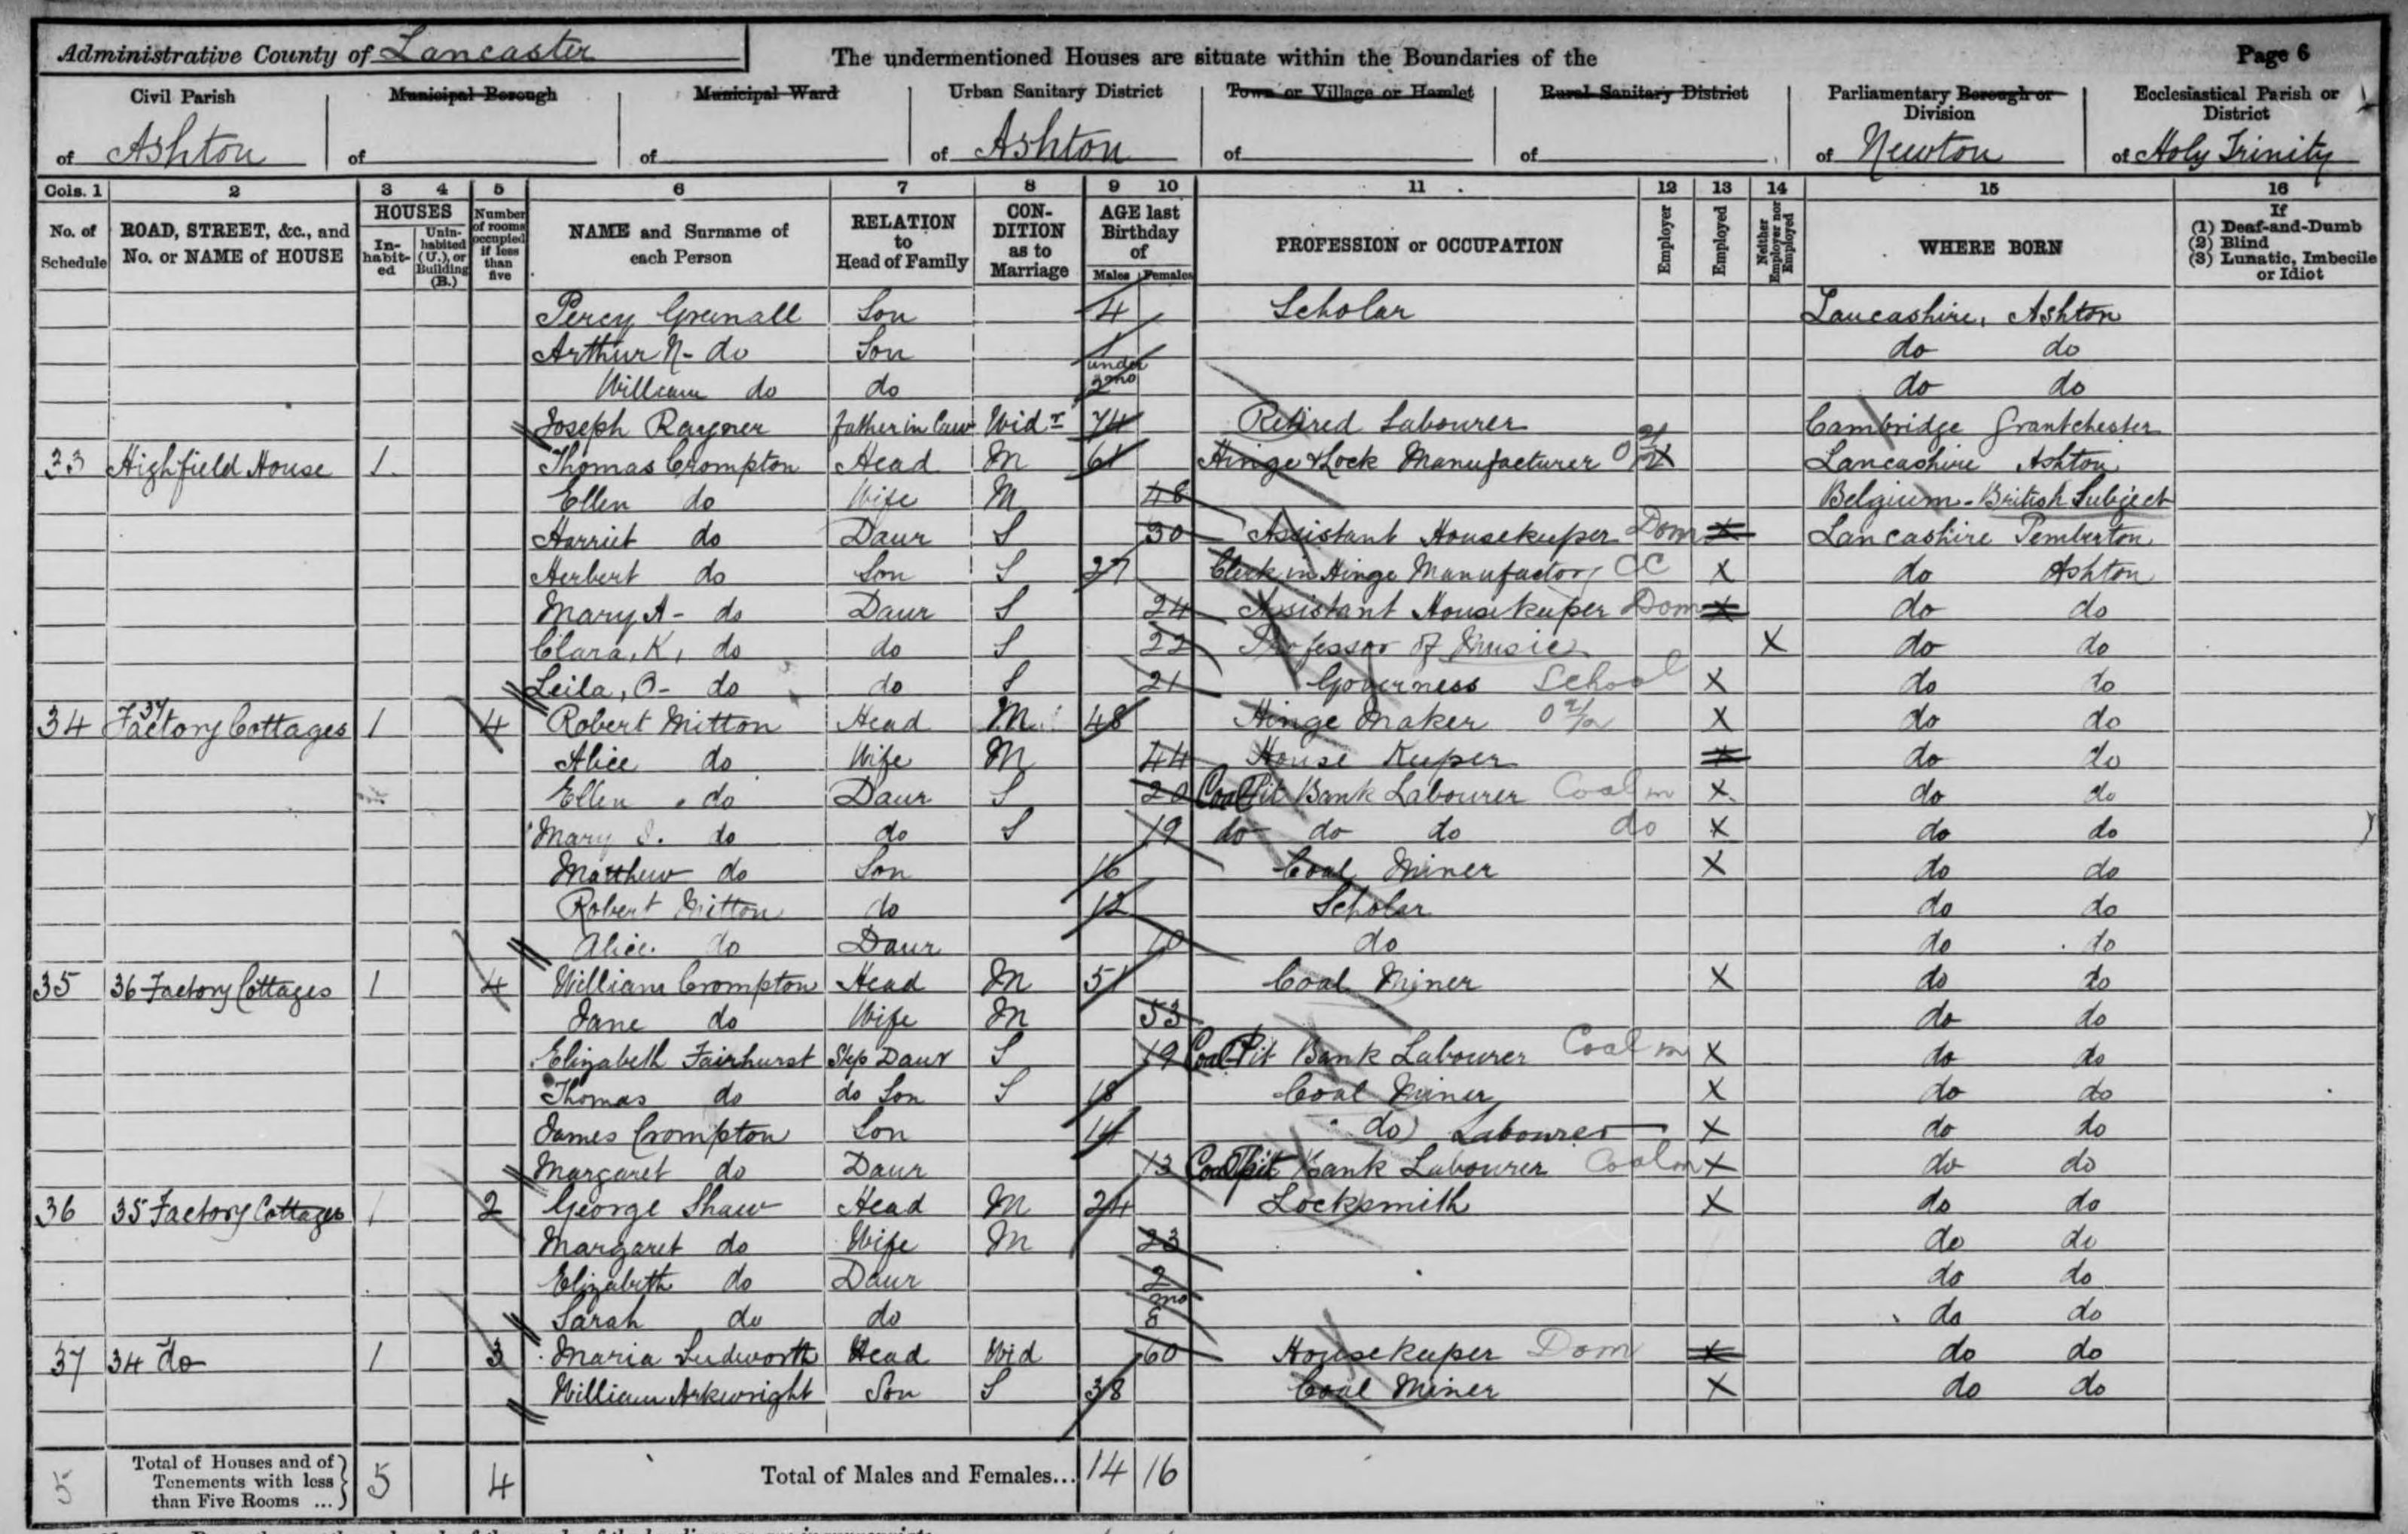 Administrative County of Lancaster The undermentioned Houses are situate within the Boundaries of the Page 6
Civil Parish Municipal Borough Municipal Ward Urban Sanitary District Town or Village or Hamlet Rural Sanitary District Parliamentary Borough or Division Ecclesiastical Parish or District
of Ashton of of of Ashton of of of Newton of Holy Trinity
Cols. 1 2 3 4 5 6 7 8 9 10 11 12 13 14 15 16
No. of Schedule ROAD, STREET, &c., and No. or NAME of HOUSE HOUSES In-habit-ed Unin-habited (U.), or Building (B.) Number of rooms occupied if less than five NAME and Surname of each Person RELATION to Head of Family CON-DITION as to Marriage AGE last Birthday of Males Females PROFESSION or OCCUPATION Employer Employed Neither Employer nor Employed WHERE BORN If (1) Deaf-and-Dumb (2) Blind (3) Lunatic, Imbecile or Idiot
Percy Greenall Son 4 Scholar Lancashire, Ashton
Arthur N- do Son 1 do do
William do do under 2 mo do do
Joseph Rayner father in law Widr 74 Retired Labourer Cambridge Grantchester
33 Highfield House 1 Thomas Crompton Head M 61 Hinge & Lock Manufacturer X Lancashire Ashton
Ellen do Wife M 48 Belgium - British Subject
Harriet do Daur S 30 Assistant Housekeeper Dom X Lancashire Pemberton
Herbert do Son S 27 Clerk in Hinge Manufactory CC X do Ashton
Mary A- do Daur S 24 Assistant Housekeeper Dom X do do
Clara, K, do do S 22 Professor of Music X do do
Leila, O- do do S 21 Governess School X do do
34 37 Factory Cottages 1 4 Robert Mitton Head M 48 Hinge Maker X do do
Alice do Wife M 44 House Keeper X do do
Ellen do Daur S 20 Coal Pit Bank Labourer Coal m X do do
Mary do do S 19 do do do do X do do
Matthew do Son 16 Coal Miner X do do
Robert Mitton do 12 Scholar do do
Alice do Daur 10 do do do
35 36 Factory Cottages 1 4 William Crompton Head M 51 Coal Miner X do do
Jane do Wife M 53 do do
Elizabeth Fairhurst Step Daur S 19 Coal Pit Bank Labourer Coal m X do do
Thomas do do Son S 18 Coal Miner X do do
James Crompton Son 14 do Labourer X do do
Margaret do Daur 13 Coal Pit Bank Labourer Coal m X do do
36 35 Factory Cottages 1 2 George Shaw Head M 24 Locksmith X do do
Margaret do Wife M 23 do do
Elizabeth do Daur 2 do do
Sarah do do mo 8 do do
37 34 do 1 3 Maria Ludworth Head Wid 60 Housekeeper Dom X do do
William Arkwright Son S 38 Coal Miner X do do
5 Total of Houses and of Tenements with less than Five Rooms ... 5 4 Total of Males and Females... 14 16